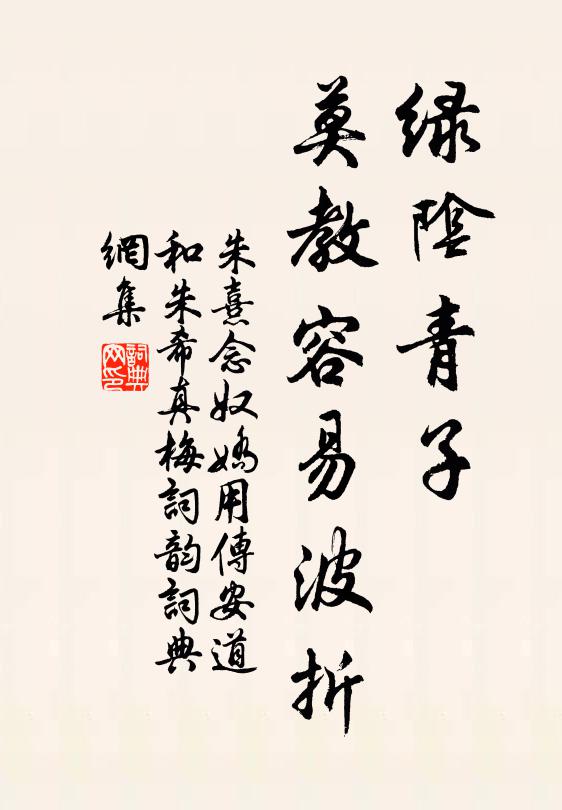 緑陰青子
莫教容易波折
朱熹念奴嬌用傅安道
和朱希真梅詞韵詞典
網集
詞典
网印